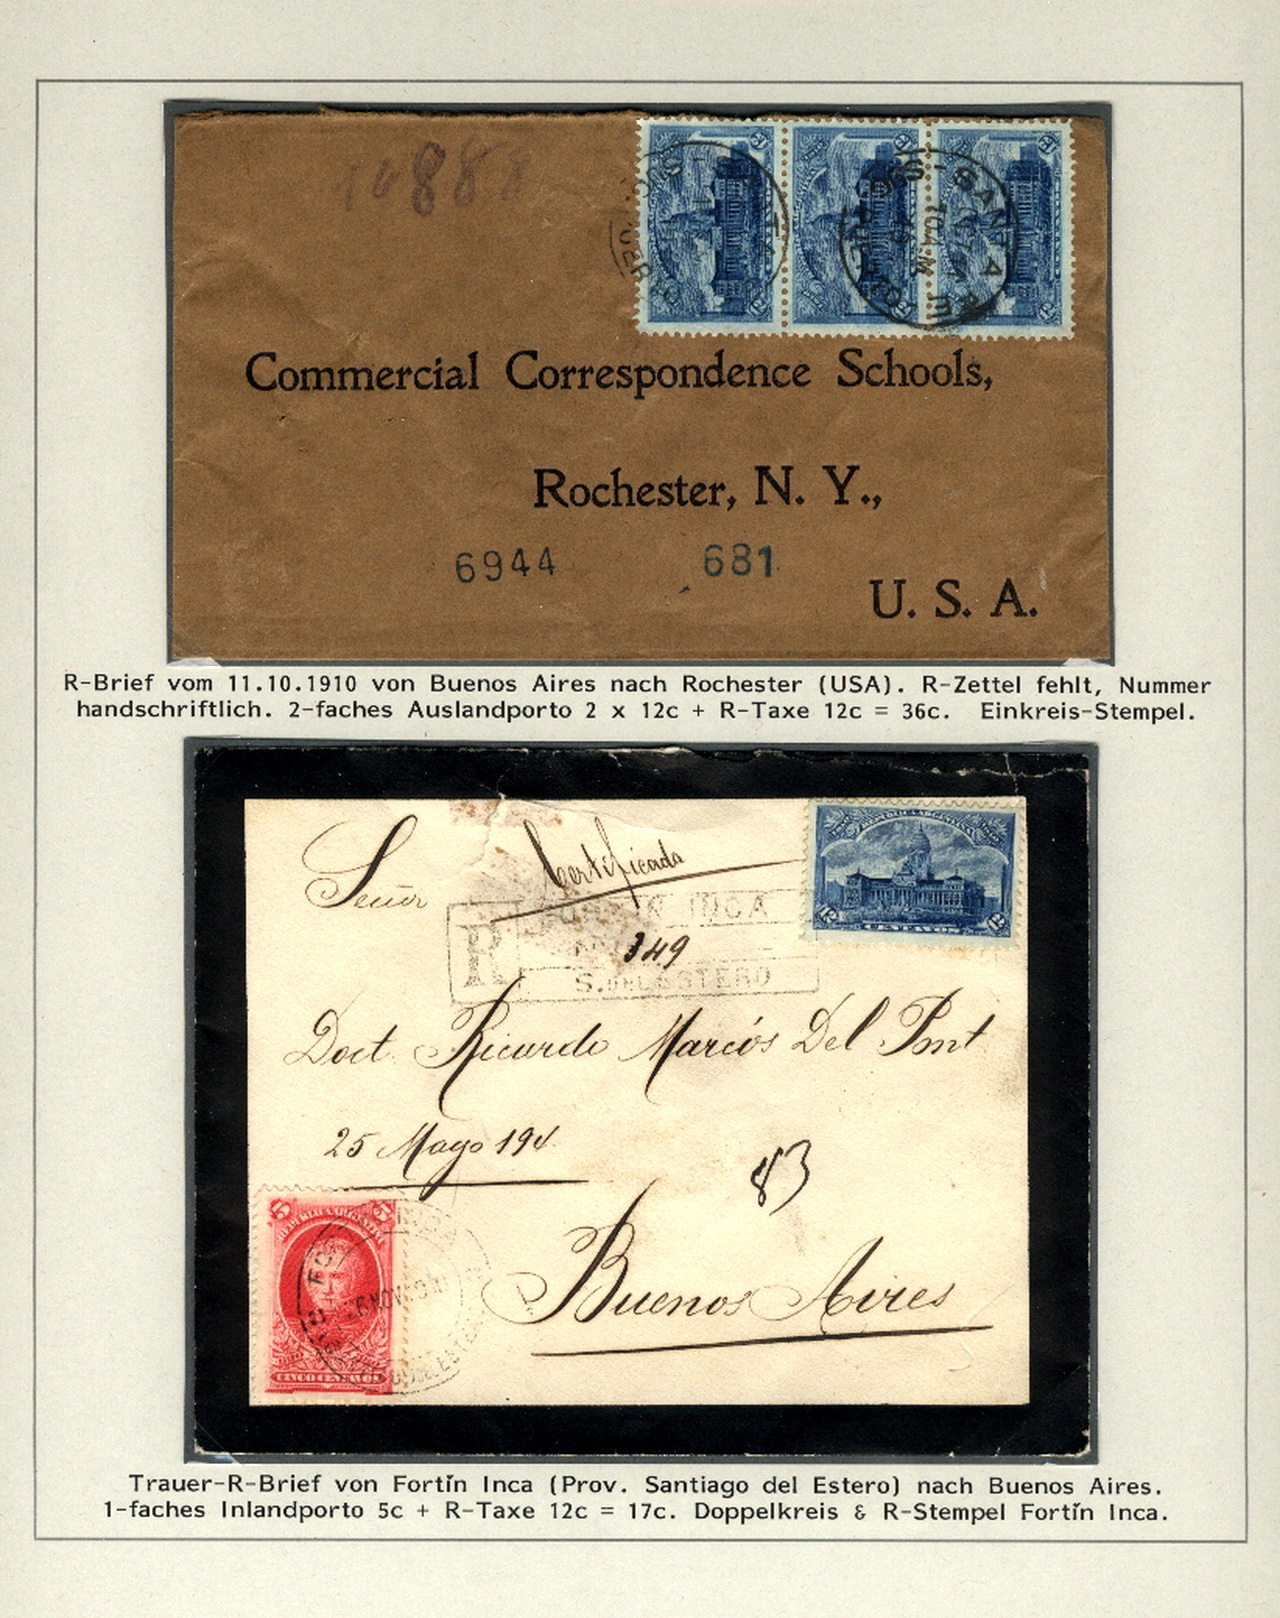 10888
SANTA FE
10 AM
Commercial Correspondence Schools,
Rochester, N. Y.,
6944 681
U. S. A.
R-Brief vom 11.10.1910 von Buenos Aires nach Rochester (USA). R-Zettel fehlt, Nummer
handschriftlich. 2-faches Auslandporto 2 x 12c + R-Taxe 12c = 36c. Einkreis-Stempel.
Señor
Certificada
REPUBLICA ARGENTINA
12 12
CENTAVOS
R
FORTIN INCA
349
S. DEL ESTERO
Doct. Ricardo Marcós Del Pont
25 Mayo 194
83
Buenos Aires
5 5
REPUBLICA ARGENTINA
CINCO CENTAVOS
NOV
Trauer-R-Brief von Fortín Inca (Prov. Santiago del Estero) nach Buenos Aires.
1-faches Inlandporto 5c + R-Taxe 12c = 17c. Doppelkreis & R-Stempel Fortín Inca.